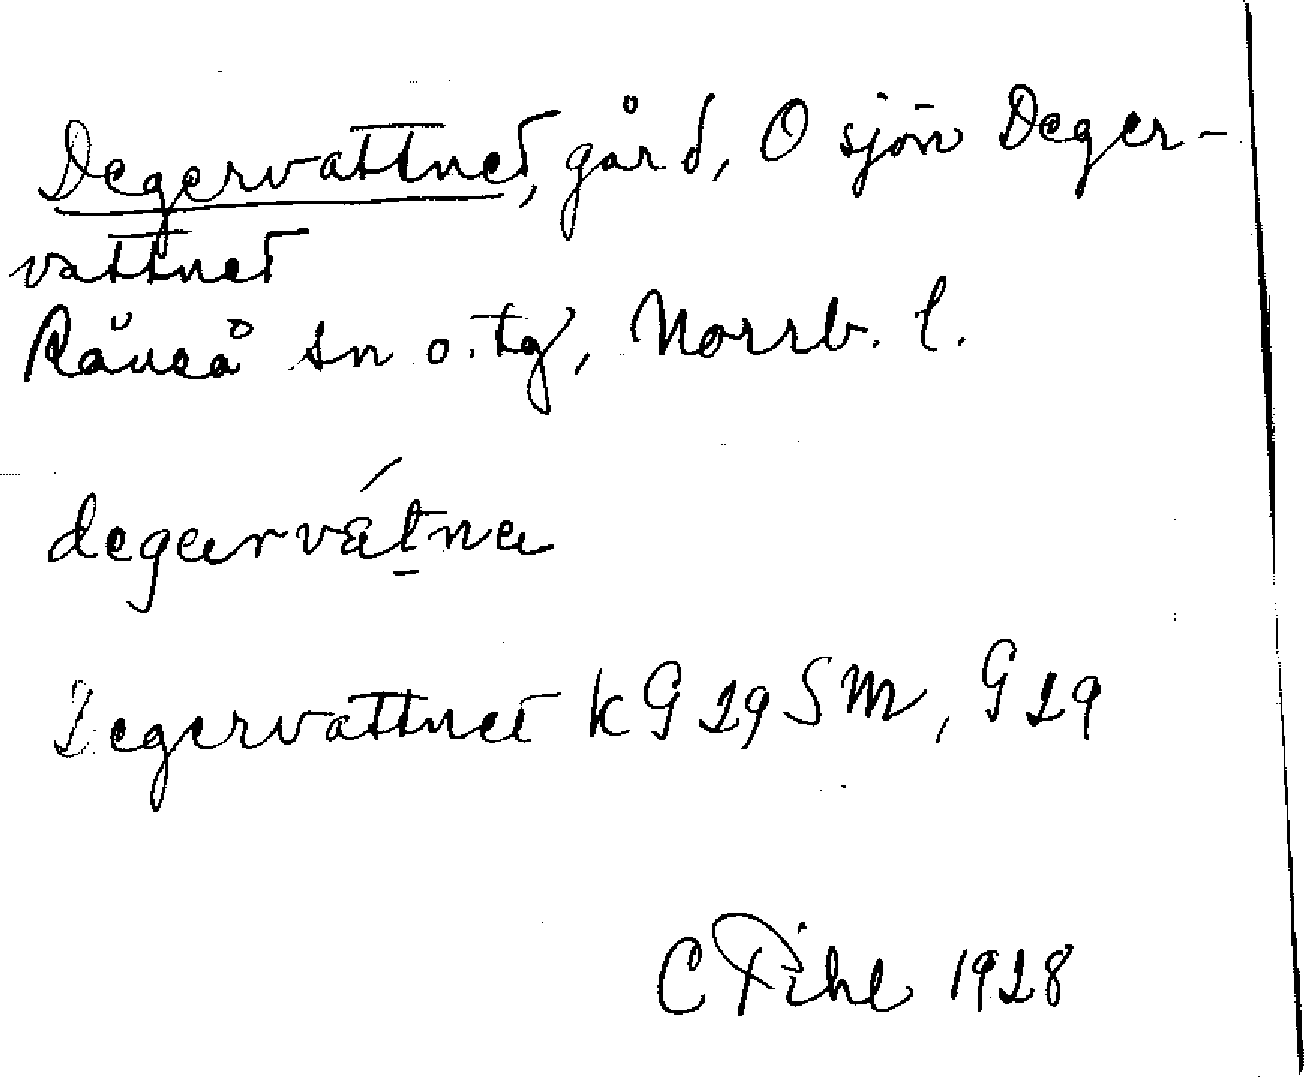 Degervattnet, gård, O sjön Deger-
vattnet
Råneå sn o. tg, Norrb. l.
degərvátnə
Degervattnet kG29SM, G29
C Pihl 1928